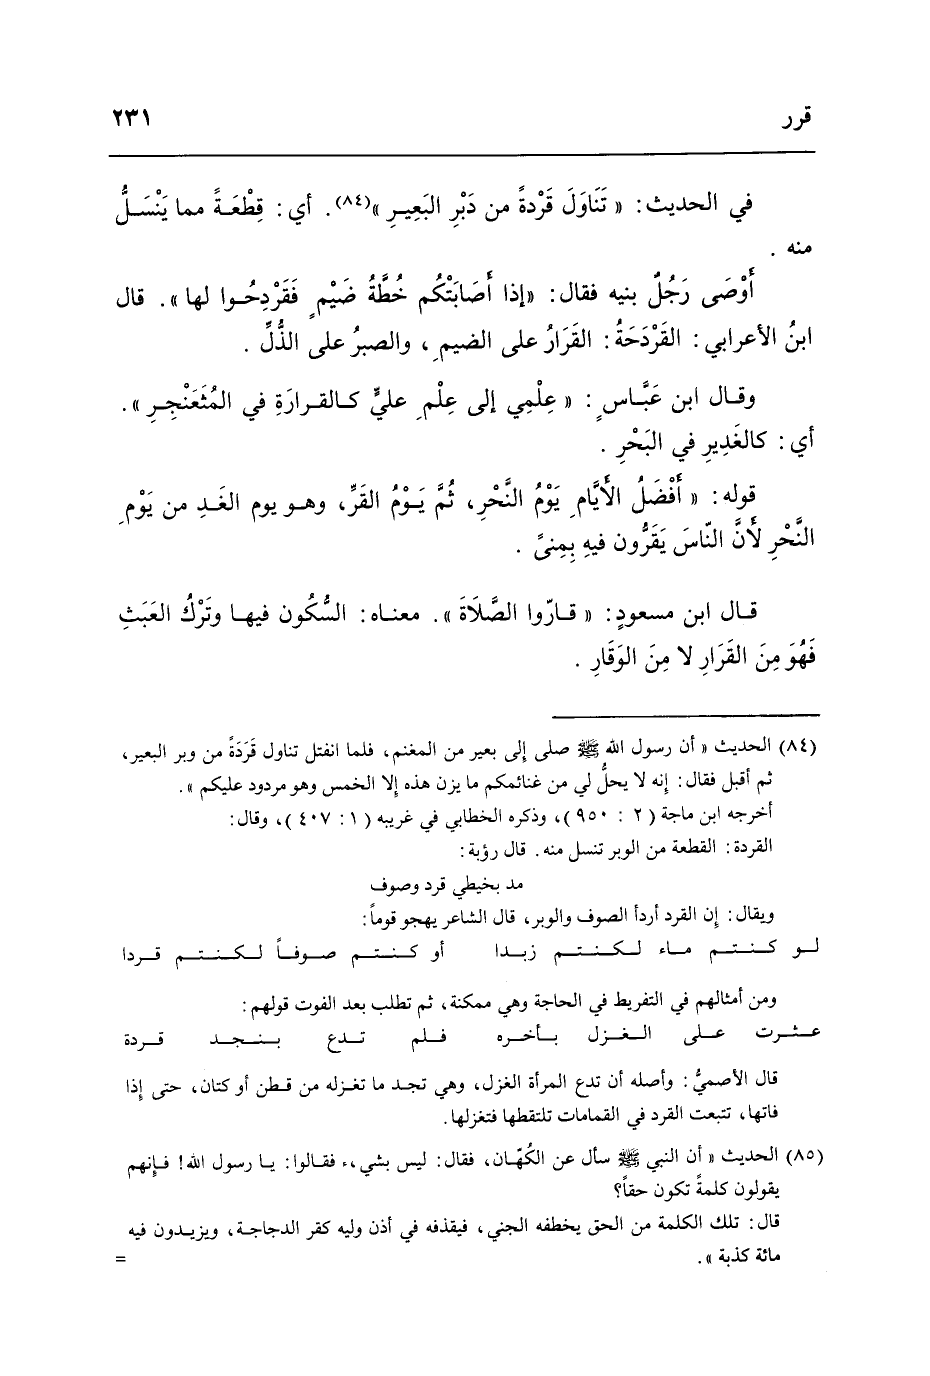 قرر ٢٣١
في الحديث: « تَنَاوَلَ قَرْدةً من دَبْرِ البَعِيـرِ »(٨٤). أي: قِطْعَـةً مما يَنْسَـلُّ
منه .
أَوْصَى رَجُلٌ بنيه فقال: «إذا أَصَابَتْكُم خُطَّةُ ضَيْمٍ فَقَرْدِحُـوا لها». قال
ابنُ الأعرابي: القَرْدَحَةُ: القَرَارُ على الضيمِ، والصبرُ على الذُّلِّ .
وقـال ابن عَبَّـاسٍ: « عِلْمِي إلى عِلْمِ عليٍّ كـالقـرارَةِ في المُثعَنْجِـرِ ».
أي: كالغَدِيرِ في البَحْرِ .
قوله: « أَفْضَلُ الأَيَّامِ يَوْمُ النَّحْرِ، ثُمَّ يَـوْمُ القَرِّ، وهـو يوم الغَـدِ من يَوْمِ
النَّحْرِ لأَنَّ النّاسَ يَقَرُّون فيهِ بِمِنىً .
قـال ابن مسعودٍ: « قـارّوا الصَّلَاةَ ». معنـاه: السُّكُون فيهـا وتَرْكُ العَبَثِ
فَهُوَ مِنَ القَرَارِ لا مِنَ الوَقَارِ .
(٨٤) الحديث « أن رسول الله ﷺ صلى إلى بعير من المغنم، فلما انفتل تناول قَرَدَةً من وبر البعير،
ثم أقبل فقال: إنه لا يحلُّ لي من غنائمكم ما يزن هذه إلا الخمس وهو مردود عليكم ».
أخرجه ابن ماجة (٢ : ٩٥٠)، وذكره الخطابي في غريبه (١ : ٤٠٧)، وقال:
القردة: القطعة من الوبر تنسل منه. قال رؤبة:
مد بخيطي قرد وصوف
ويقال: إن القرد أردأ الصوف والوبر، قال الشاعر يهجو قوماً:
لـو كـنـتـم مـاء لـكـنـتـم زبـدا أو كـنـتـم صـوفـاً لـكـنـتـم قـردا
ومن أمثالهم في التفريط في الحاجة وهي ممكنة، ثم تطلب بعد الفوت قولهم:
عـثـرت عـلى الـغـزل بـأخـره فـلم تـدع بـنـجـد قـردة
قال الأصميُّ: وأصله أن تدع المرأة الغزل، وهي تجـد ما تغـزله من قـطن أو كتان، حتى إذا
فاتها، تتبعت القرد في القمامات تلتقطها فتغزلها.
(٨٥) الحديث « أن النبي ﷺ سأل عن الكُهّان، فقال: ليس بشيء، فقـالوا: يـا رسول الله! فـإنهم
يقولون كلمةً تكون حقاً؟
قال: تلك الكلمة من الحق يخطفه الجني، فيقذفه في أذن وليه كقر الدجاجـة، ويزيـدون فيه
مائة كذبة ».
=